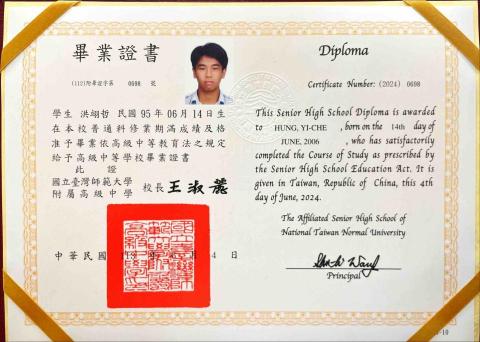 畢業證書
(112)附畢證字第 0698 號
學生 洪翊哲 民國95年06月14日生
在本校普通科修業期滿成績及格
准予畢業依高級中等教育法之規定
給予高級中等學校畢業證書
此證
國立臺灣師範大學
附屬高級中學 校長 王淑麗
中華民國 113 年 6 月 4 日
Diploma
Certificate Number: (2024) 0698
This Senior High School Diploma is awarded
to HUNG, YI-CHE , born on the 14th day of
JUNE, 2006 , who has satisfactorily
completed the Course of Study as prescribed by
the Senior High School Education Act. It is
given in Taiwan, Republic of China, this 4th
day of June, 2024.
The Affiliated Senior High School of
National Taiwan Normal University
Principal